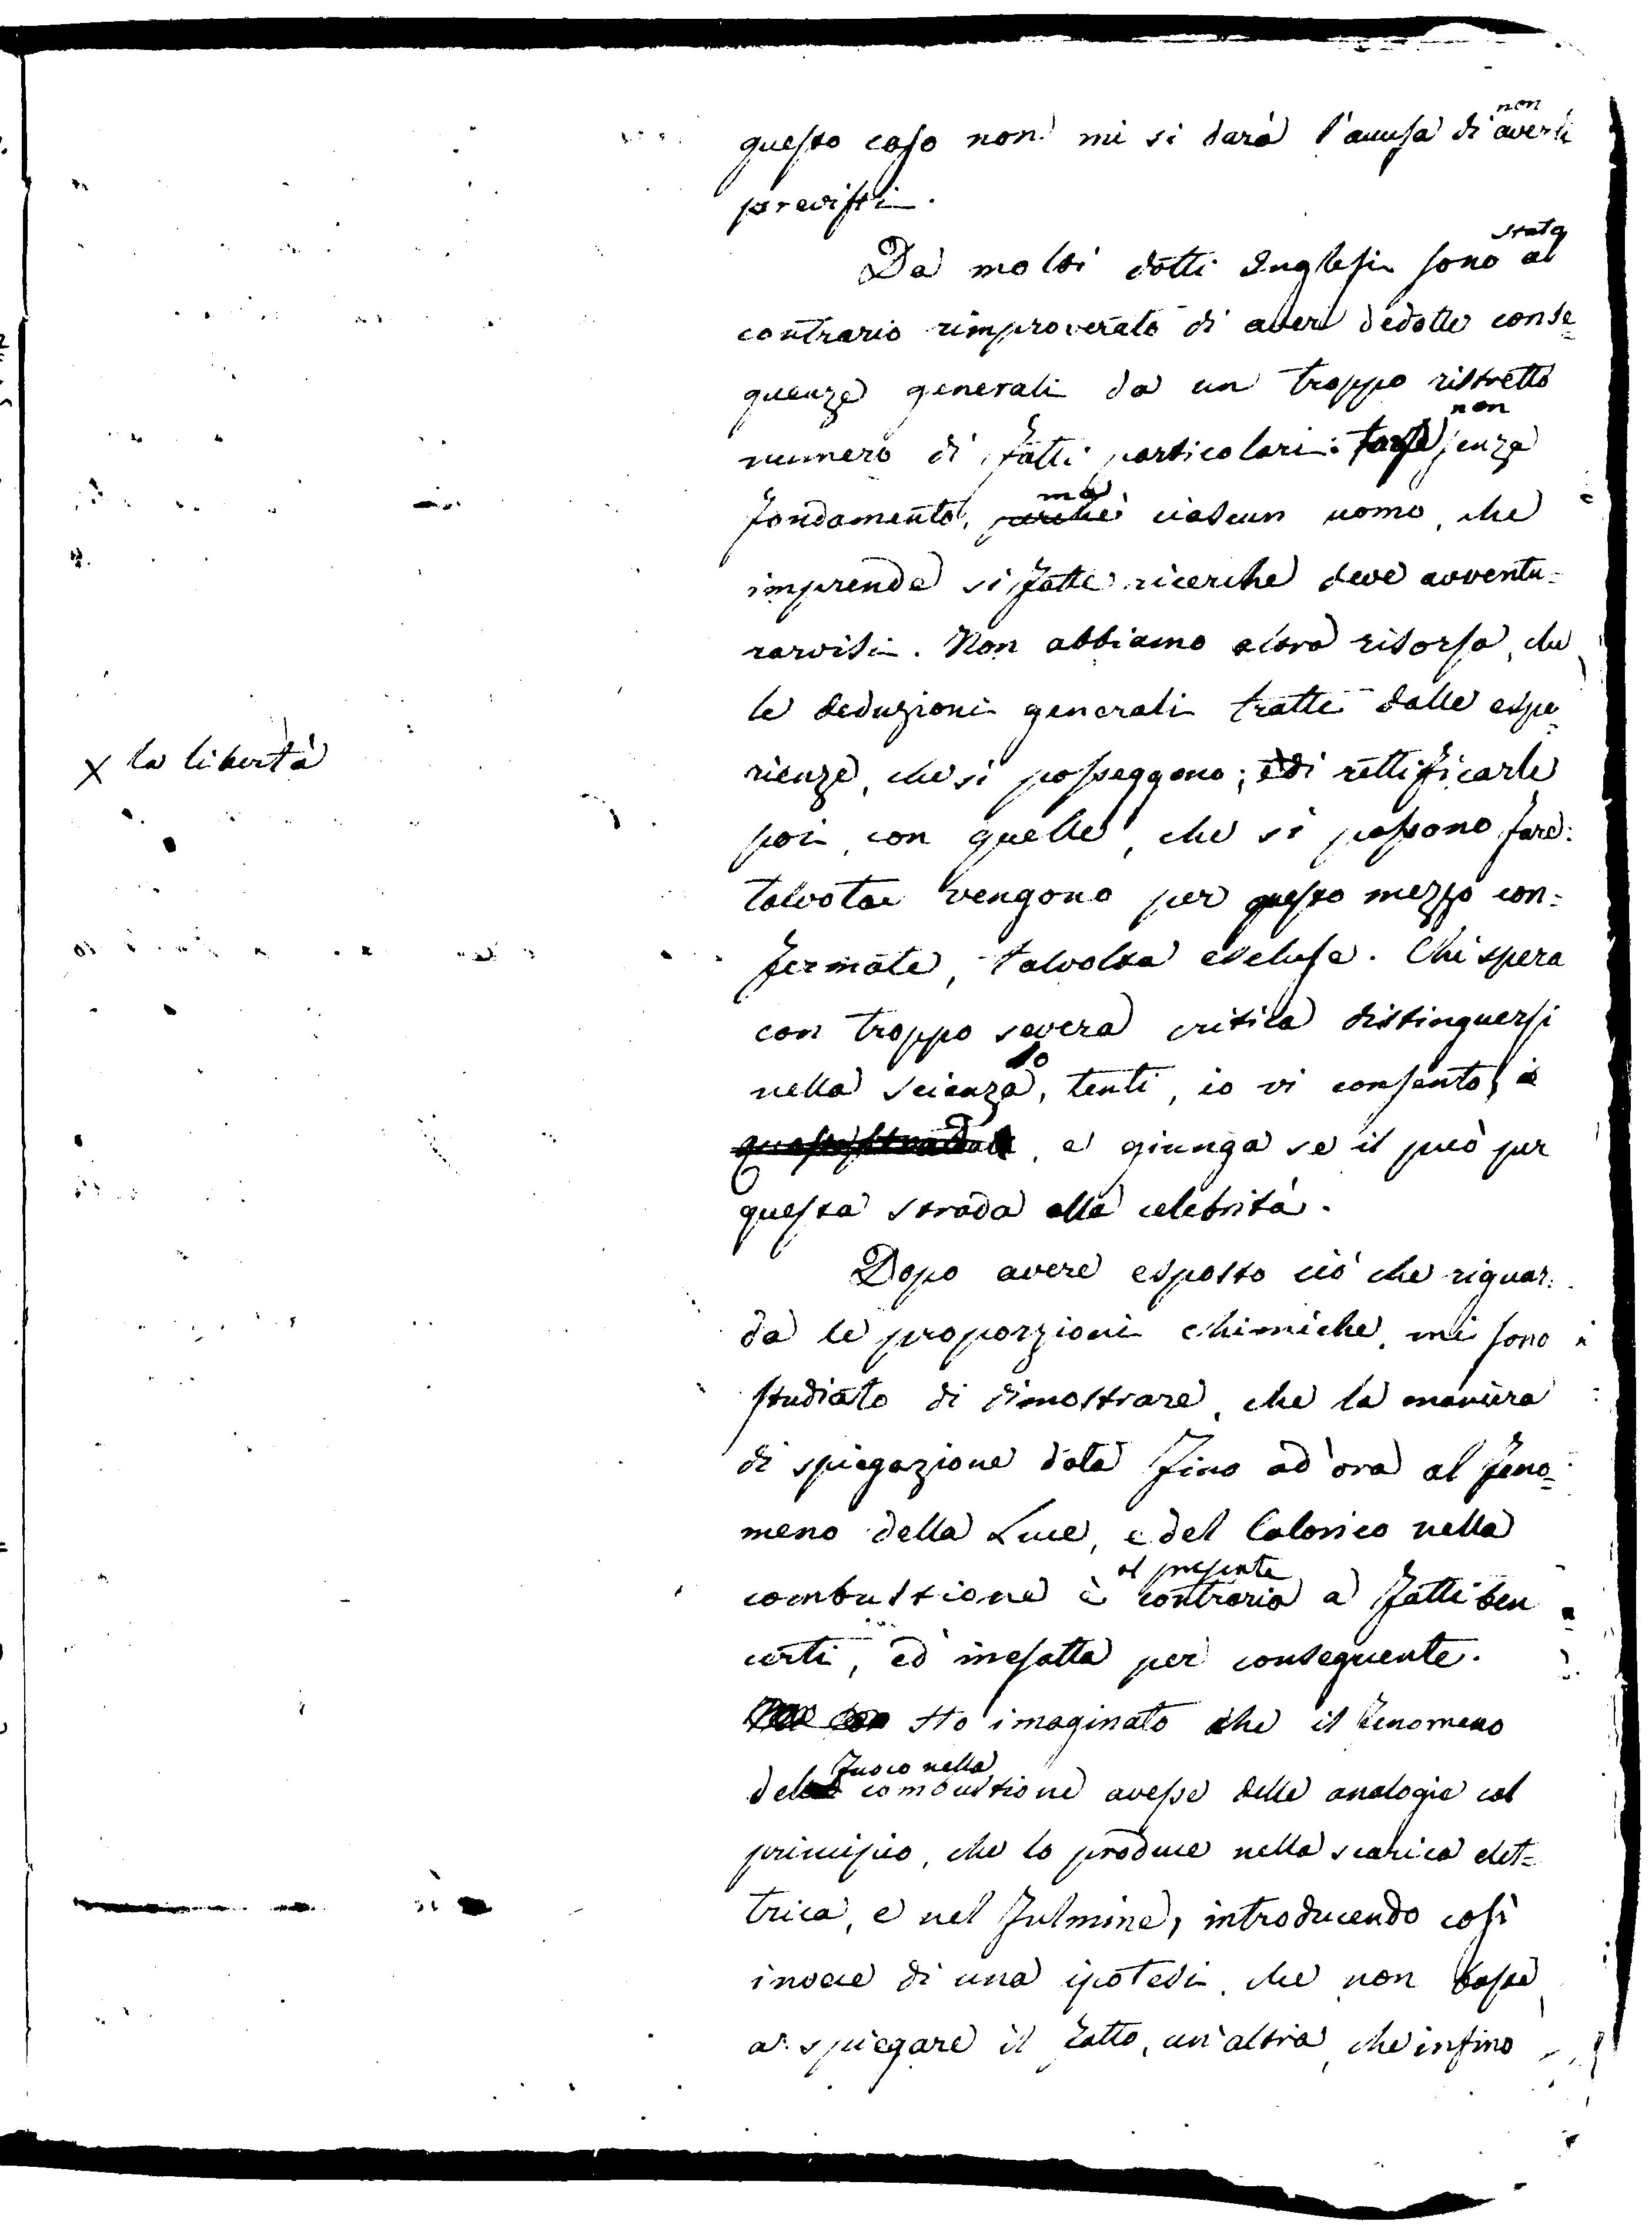 non
questo caso non mi si darà l'accusa di averli
previsti.
stato
Da molti dotti Inglesi sono al
contrario rimproverato di aver dedotte conse=
guenze generali da un troppo ristretto
non
numero di fatti particolari: forse senza
ma
fondamento, perchè ciascun uomo, che
imprende si fatte ricerche deve avventu=
rarvisi. Non abbiamo altra risorsa, che
le deduzioni generali tratte dalle espe=
× la libertà
rienze, che si posseggono; e di rettificarle
poi, con quelle, che si possono fare:
talvolta vengono per questo mezzo con=
fermate, talvolta escluse. Chi spera
con troppo severa critica distinguersi
lo
nella scienza, tenti, io vi consento,
, e giunga se il può per
questa strada alla celebrità.
Dopo avere esposto ciò che riguar=
da le proporzioni chimiche, mi sono
studiato di dimostrare, che la maniera
di spiegazione data fino ad ora al feno=
meno della Luce, e del Calorico nella
al presente
combustione è contraria a fatti ben
certi, ed inesatta per conseguente.
Ho imaginato che il fenomeno
fuoco nella
del combustione avesse delle analogie col
principio, che lo produce nella scarica elet=
trica, e nel fulmine, introducendo così
invece di una ipotesi, che non basta
a spiegare il fatto, un'altra, che infino